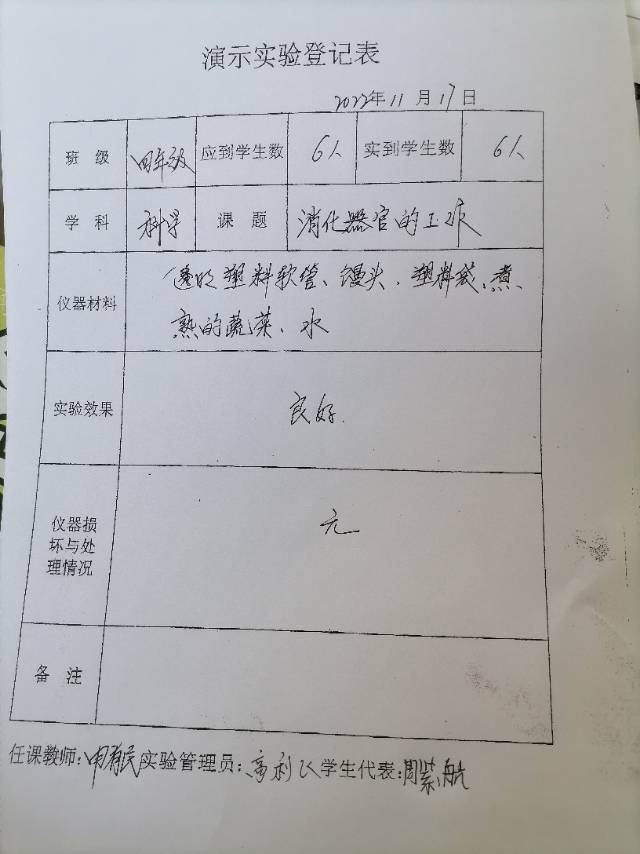 演示实验登记表
2022年11月17日
班 级 四年级 应到学生数 6人 实到学生数 6人
学 科 科学 课 题 消化器官的工作
仪器材料 透明塑料软管、馒头、塑料袋、煮
熟的蔬菜、水
实验效果 良好.
仪器损
坏与处
理情况
无
备 注
任课教师: 实验管理员: 学生代表:周紫航